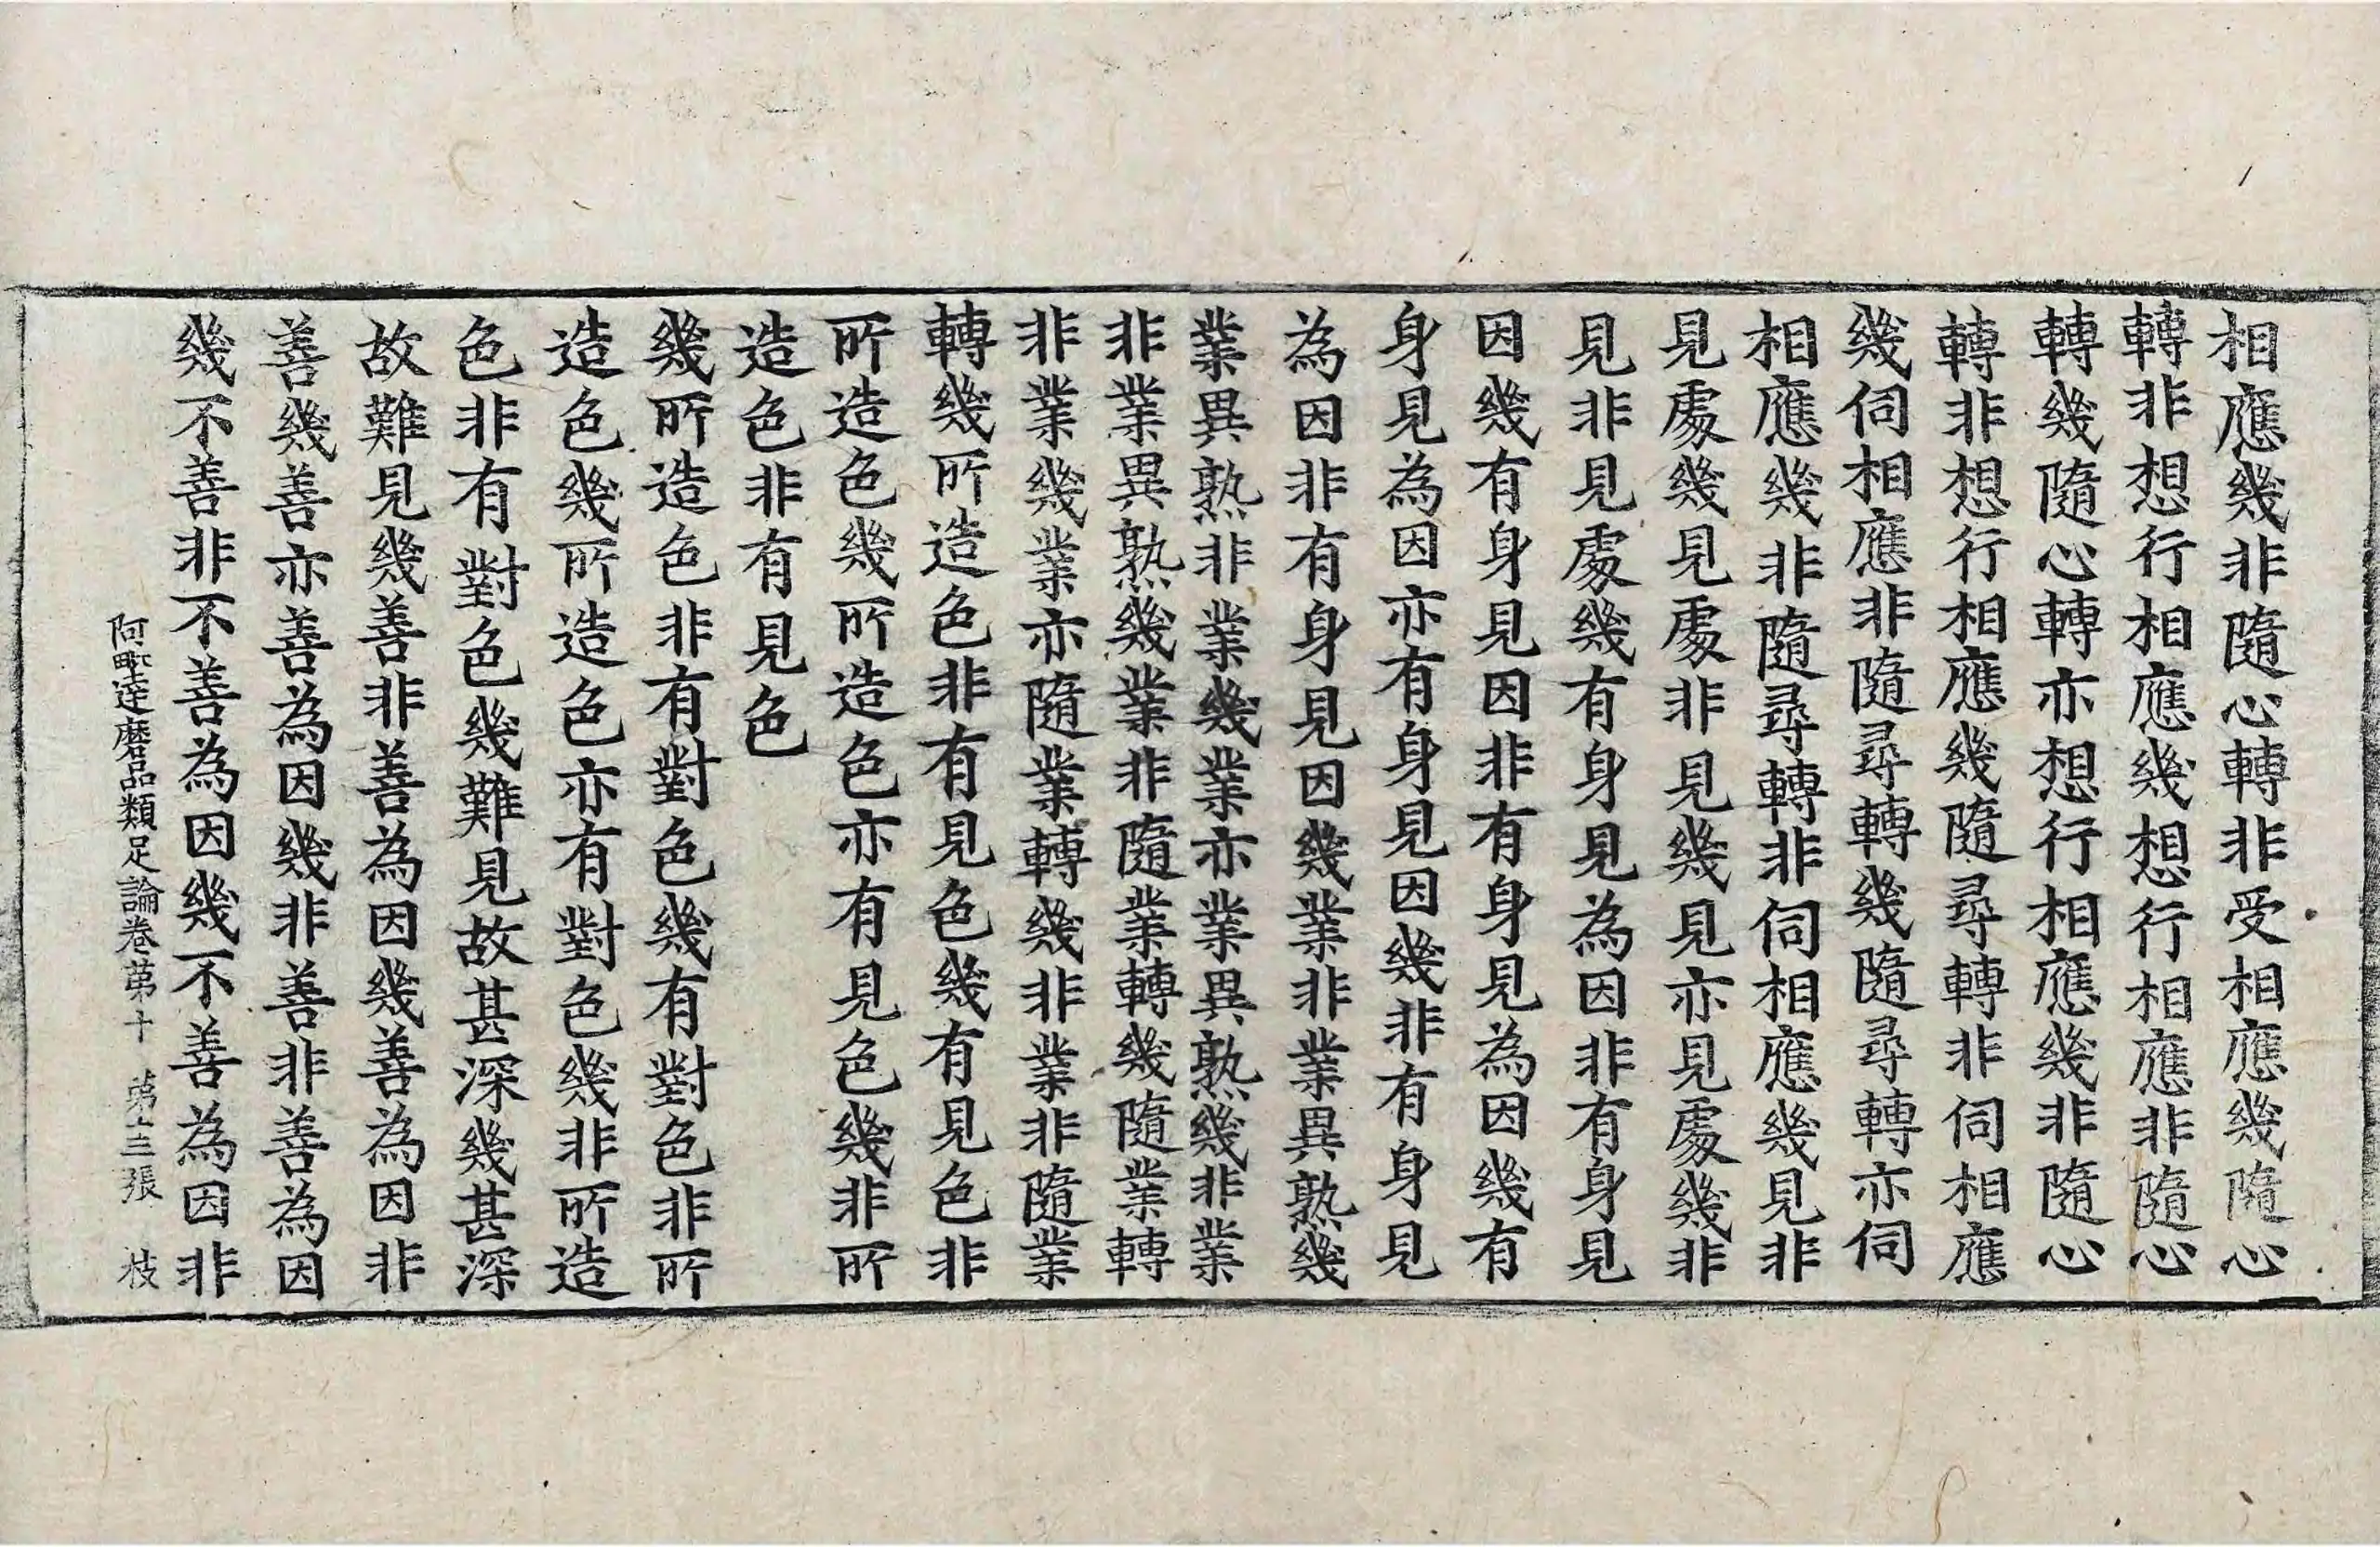 相應幾非隨心轉非受相應幾隨心
轉非想行相應幾想行相應非隨心
轉幾隨心轉亦想行相應幾非隨心
轉非想行相應幾隨尋轉非伺相應
幾伺相應非隨尋轉幾隨尋轉亦伺
相應幾非隨尋轉非伺相應幾見非
見處幾見處非見幾見亦見處幾非
見非見處幾有身見為因非有身見
因幾有身見因非有身見為因幾有
身見為因亦有身見因幾非有身見
為因非有身見因幾業非業異熟幾
業異熟非業幾業亦業異熟幾非業
非業異熟幾業非隨業轉幾隨業轉
非業幾業亦隨業轉幾非業非隨業
轉幾所造色非有見色幾有見色非
所造色幾所造色亦有見色幾非所
造色非有見色
幾所造色非有對色幾有對色非所
造色幾所造色亦有對色幾非所造
色非有對色幾難見故甚深幾甚深
故難見幾善非善為因幾善為因非
善幾善亦善為因幾非善非善為因
幾不善非不善為因幾不善為因非
阿毗達磨品類足論卷第十 第十三張 枝